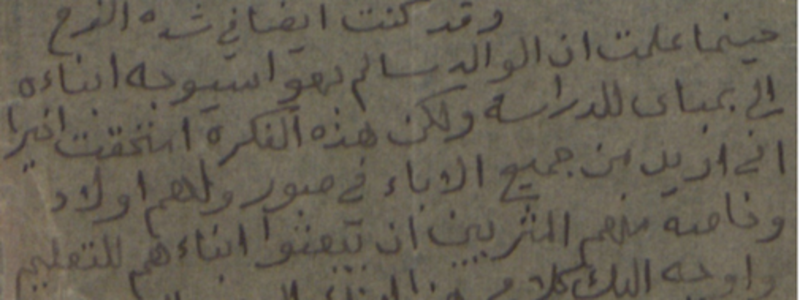 وقد كنت ايضا في شده الفرح
حينما علمت ان الوالد سالم بهوا سيوجه ابناءه
الى بمباى للدراسه ولكن هذه الفكره اخفقت اخيرا
اني اريد من جميع الاباء في صور ولهم اولاد
وخاصه منهم المثريين ان يبعثوا ابناءهم للتعليم
واوجه اليك